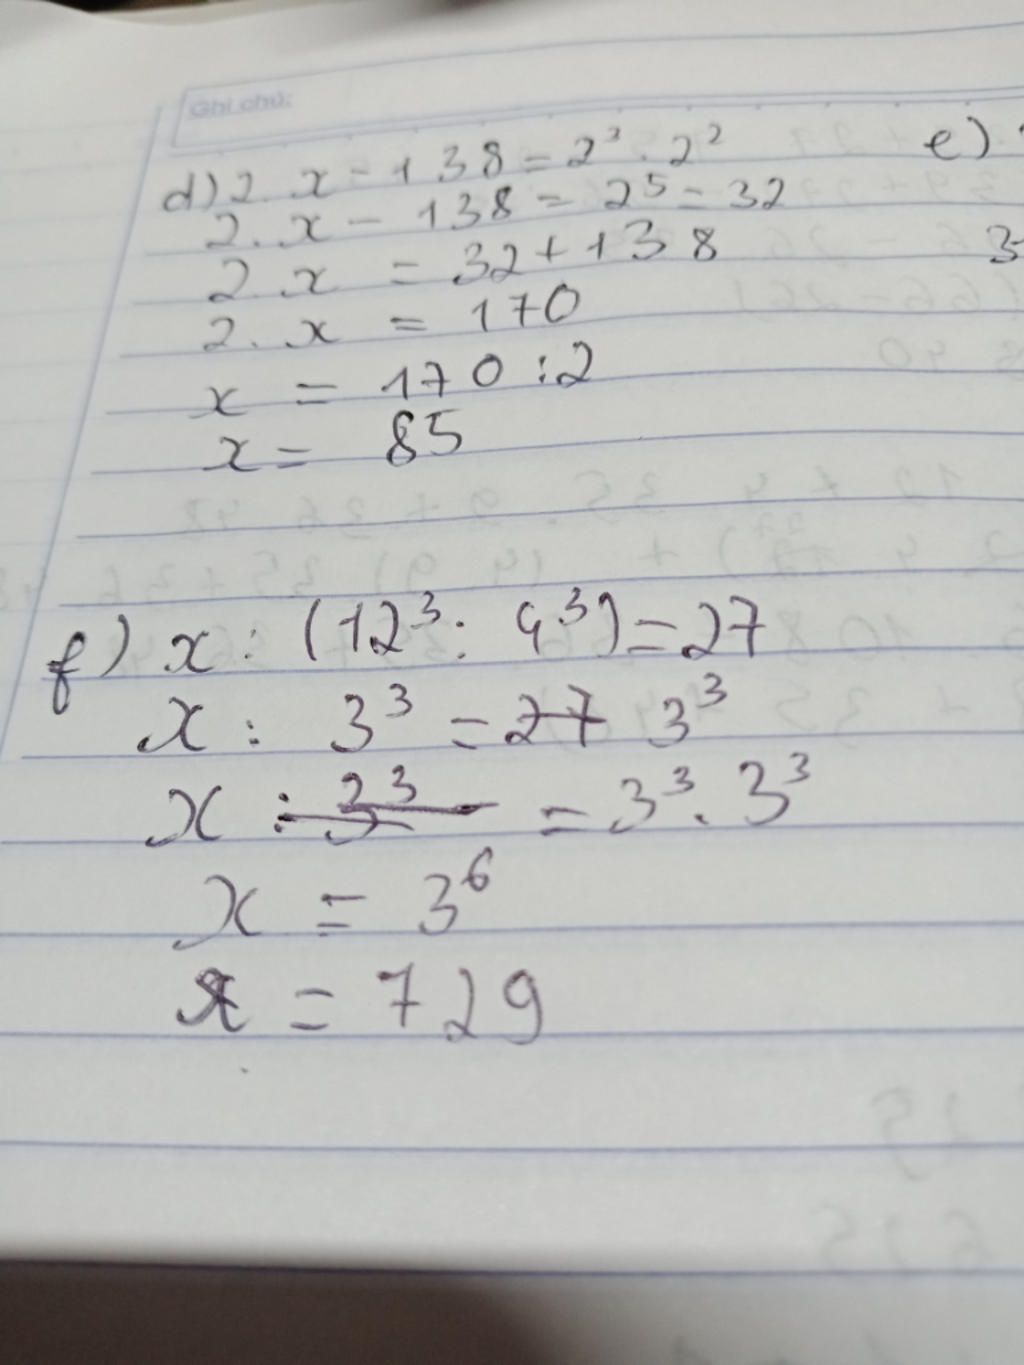 Ghi chú:
d) 2. x - 138 = 2³. 2²
2. x - 138 = 2⁵ = 32
2. x = 32 + 138
2. x = 170
x = 170 : 2
x = 85
e)
3
f) x : (12³ : 4³) = 27
x : 3³ = 27 3³
x : 3³ = 3³ . 3³
x = 3⁶
x = 729